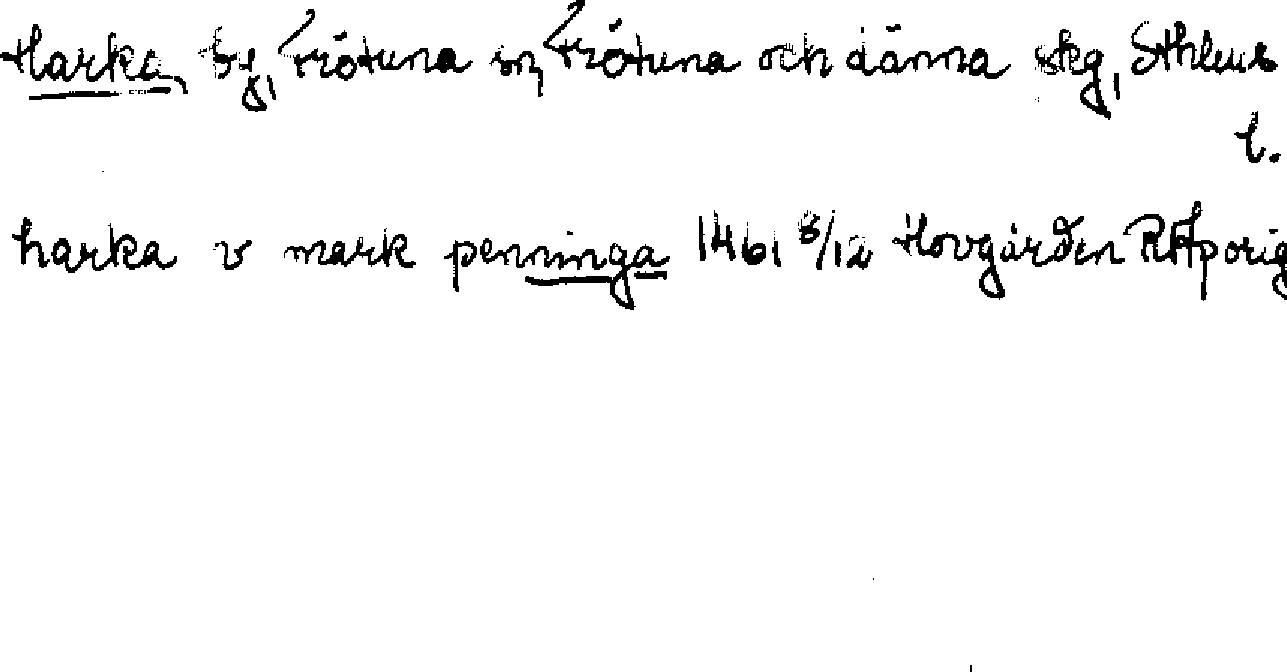 Harka, by, Frötuna sn, Frötuna och Länna skg, Sthlms
l.
harka v mark penninga 1461 8/12 Hovgården RAp orig